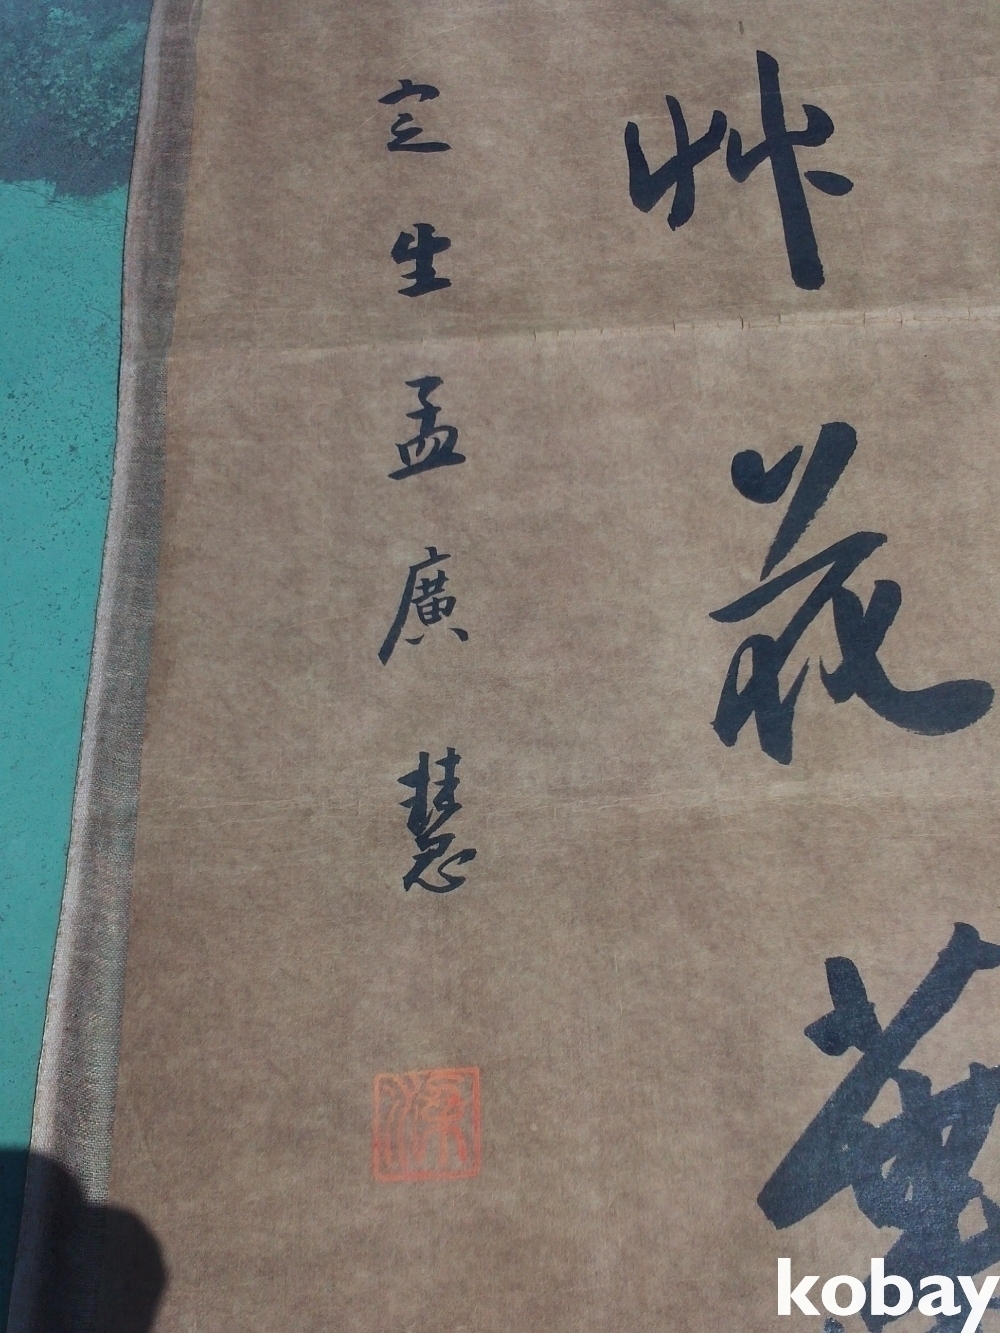 艸花
定生孟廣慧
kobay